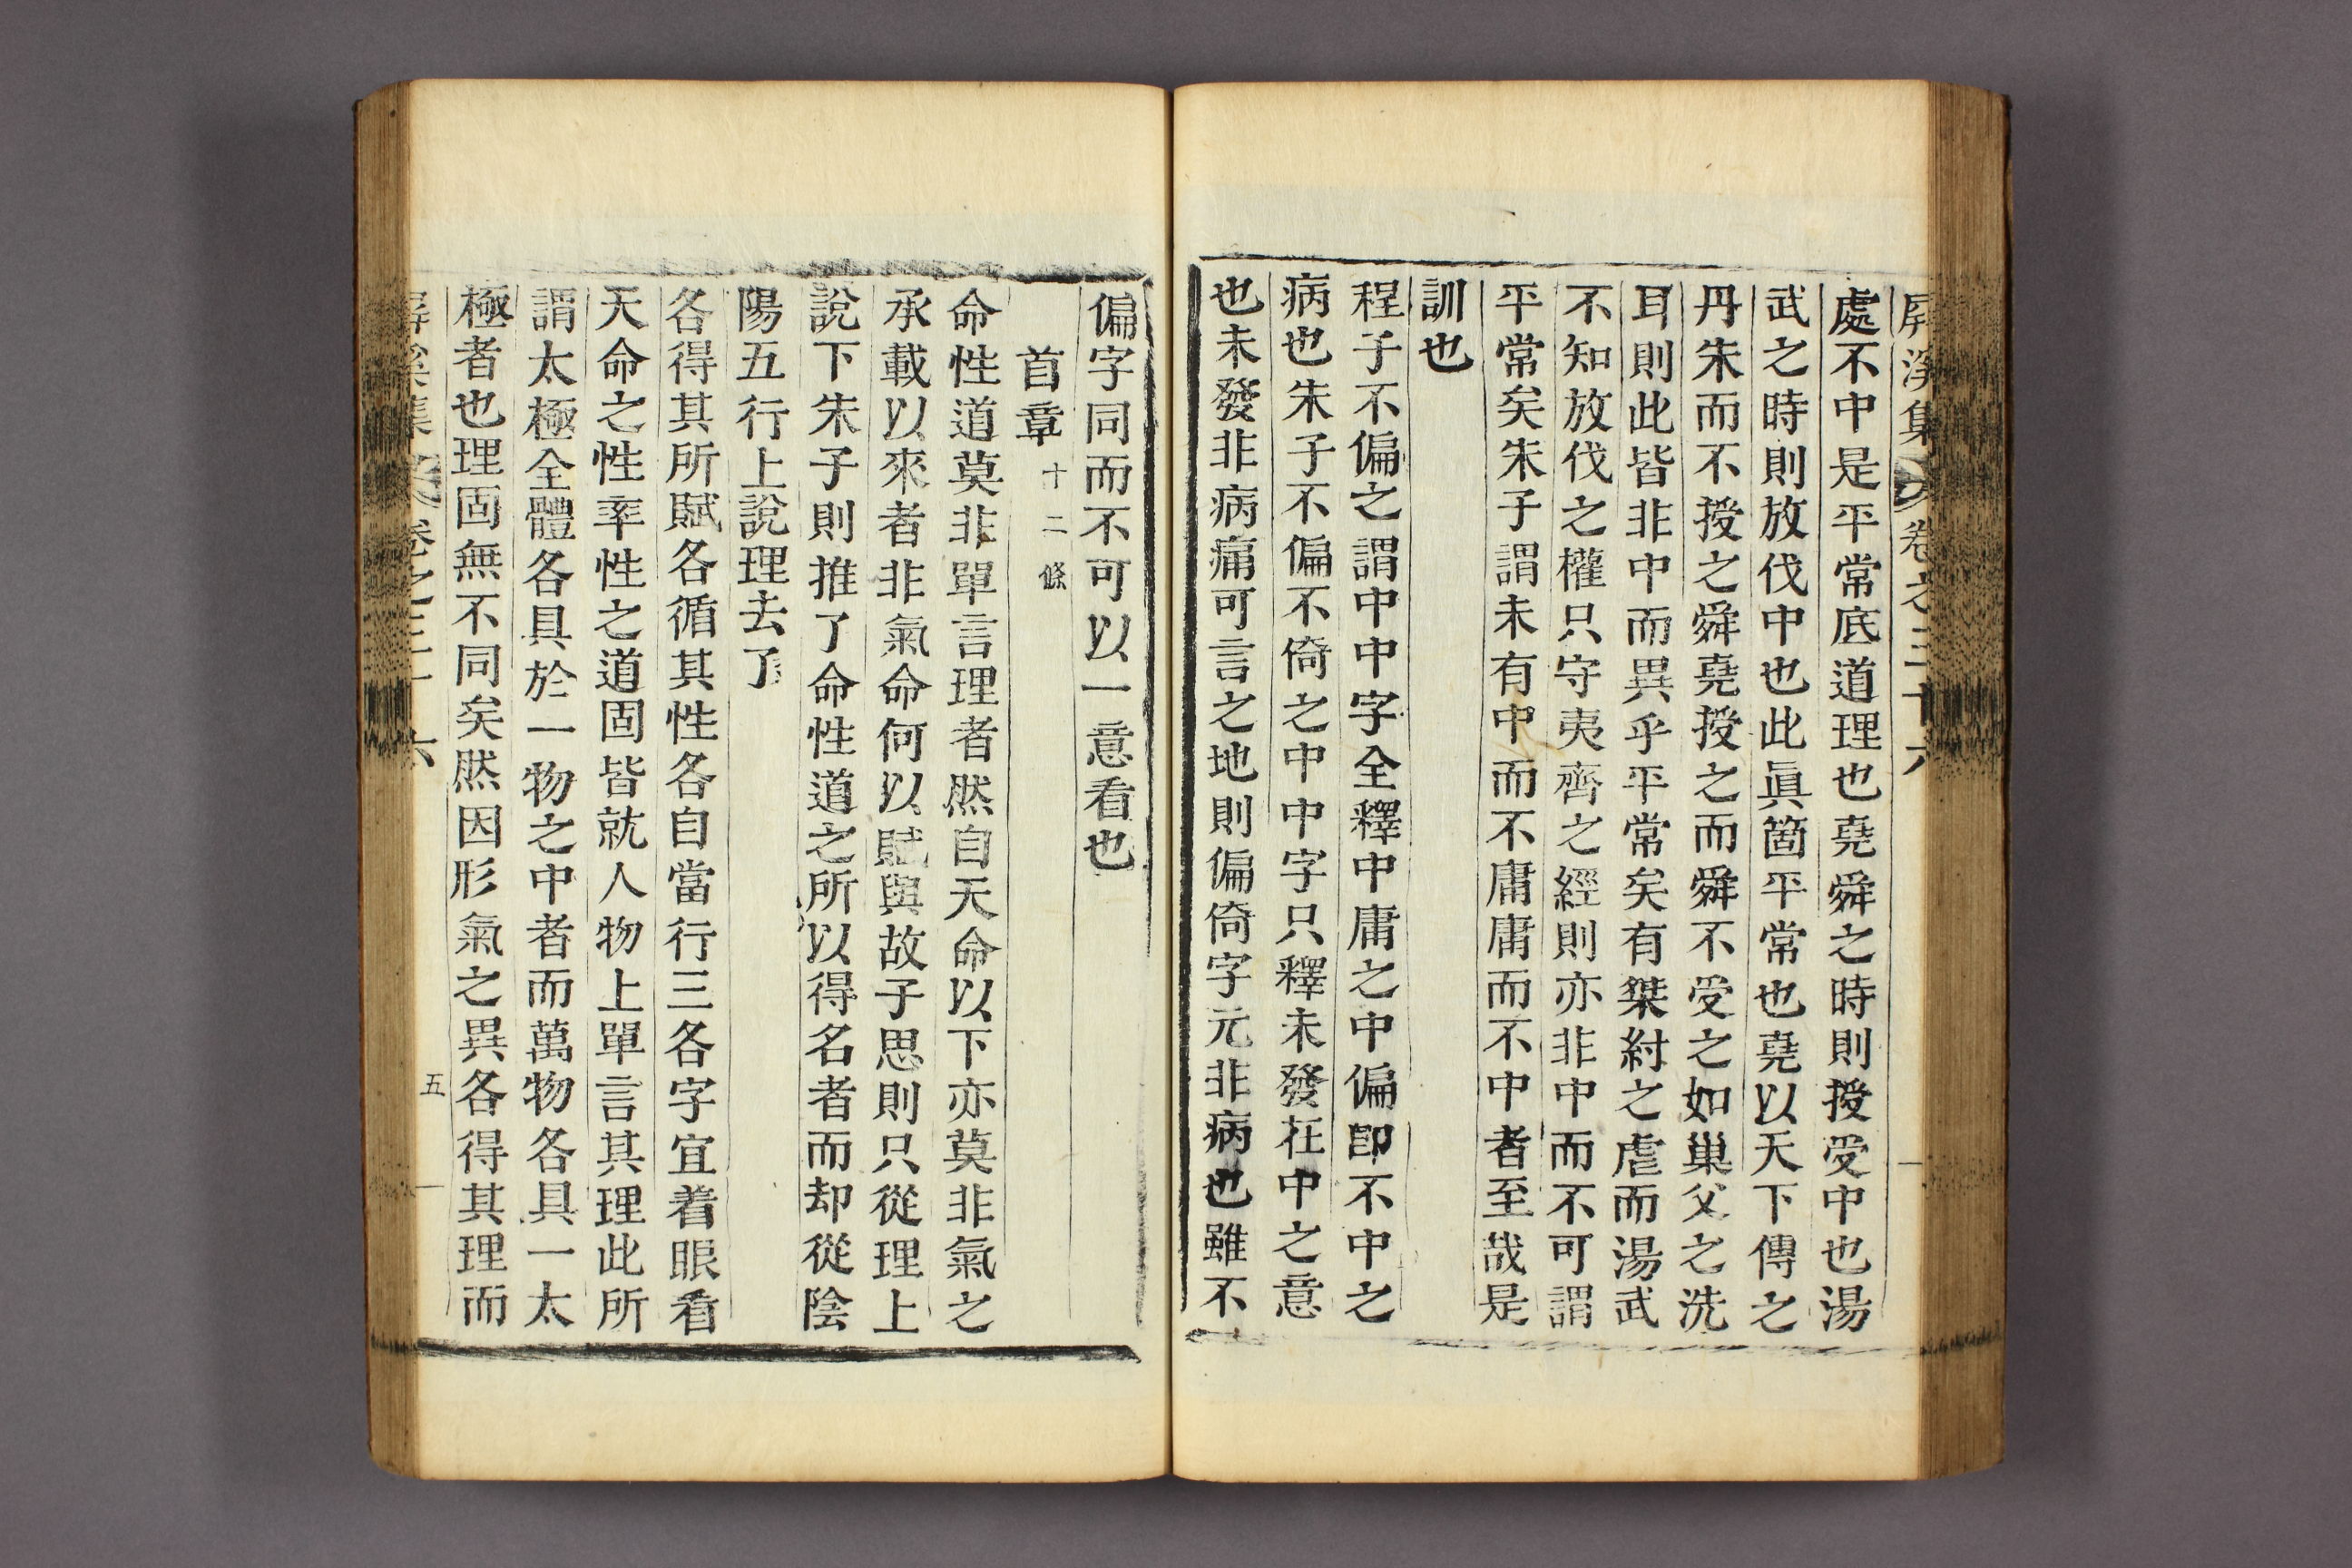 屛溪集 卷之三十六
處不中是平常底道理也堯舜之時則授受中也湯
武之時則放伐中也此眞箇平常也堯以天下傳之
丹朱而不授之舜堯授之而舜不受之如巢父之洗
耳則此皆非中而異乎平常矣有桀紂之虐而湯武
不知放伐之權只守夷齊之經則亦非中而不可謂
平常矣朱子謂未有中而不庸庸而不中者至哉是
訓也
程子不偏之謂中中字全釋中庸之中偏卽不中之
病也朱子不偏不倚之中中字只釋未發在中之意
也未發非病痛可言之地則偏倚字元非病也雖不
偏字同而不可以一意看也
首章 十二條
命性道莫非單言理者然自天命以下亦莫非氣之
承載以來者非氣命何以賦與故子思則只從理上
說下朱子則推了命性道之所以得名者而却從陰
陽五行上說理去了
各得其所賦各循其性各自當行三各字宜着眼看
天命之性率性之道固皆就人物上單言其理此所
謂太極全體各具於一物之中者而萬物各具一太
極者也理固無不同矣然因形氣之異各得其理而
屛溪集 卷之三十六 五